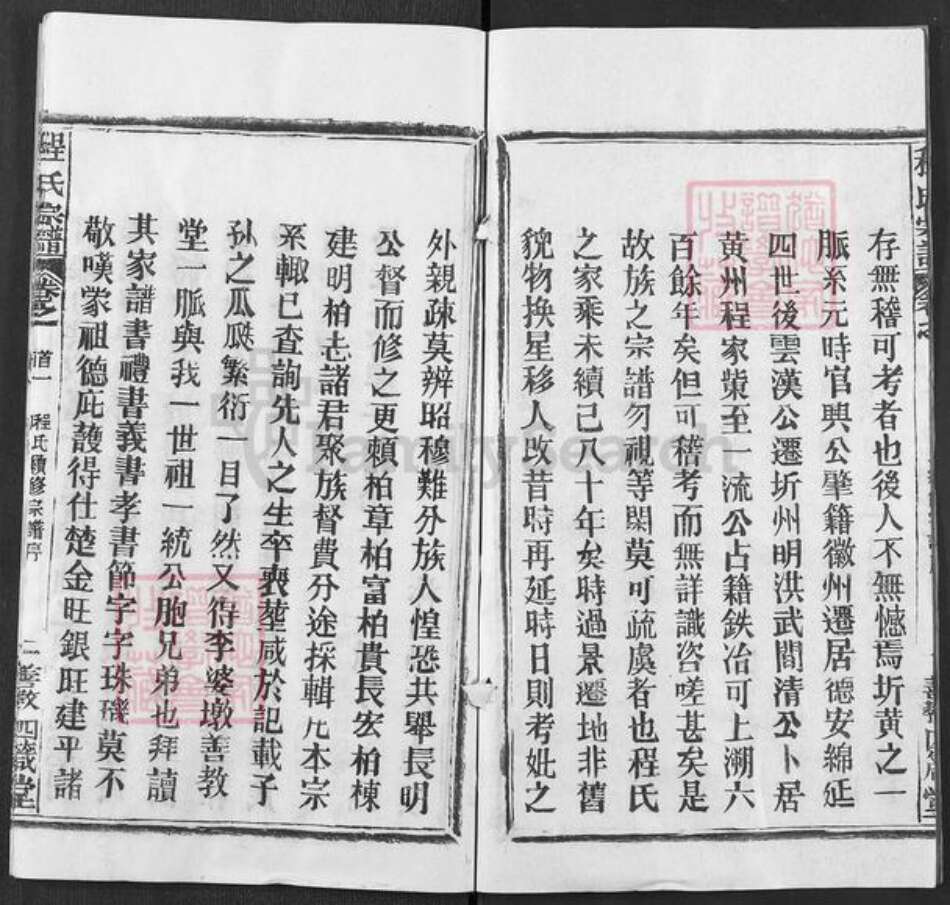 存無稽可考者也後人不無憾焉圻黄之一
脈系元時官興公肇籍徽州遷居德安綿延
四世後雲漢公遷圻州明洪武間清公卜居
黄州程家塝至一流公占籍鉄冶可上溯六
百餘年矣但可稽考而無詳識咨嗟甚矣是
故族之宗譜勿視等閑莫可疏虞者也程氏
之家乘未續已八十年矣時過景遷地非舊
貌物换星移人改昔時再延時日則考妣之
外親疎莫辨昭穆難分族人惶恐共舉長明
公督而修之更賴柏章柏富柏貴長宏柏棟
建明柏志諸君聚族督費分途採輯凡本宗
系輙已查詢先人之生卒喪塟咸於記載子
孙之瓜瓞繁衍一目了然又得李婆墩善教
堂一脈與我一世祖一統公胞兄弟也拜讀
其家譜書禮書義書孝書節字字珠璣莫不
敬嘆蒙祖德庇護得仕楚金旺銀旺建平諸
程氏宗譜
卷之一
首一
程氏續修宗譜序
二
善教
四箴堂
FamilySearch